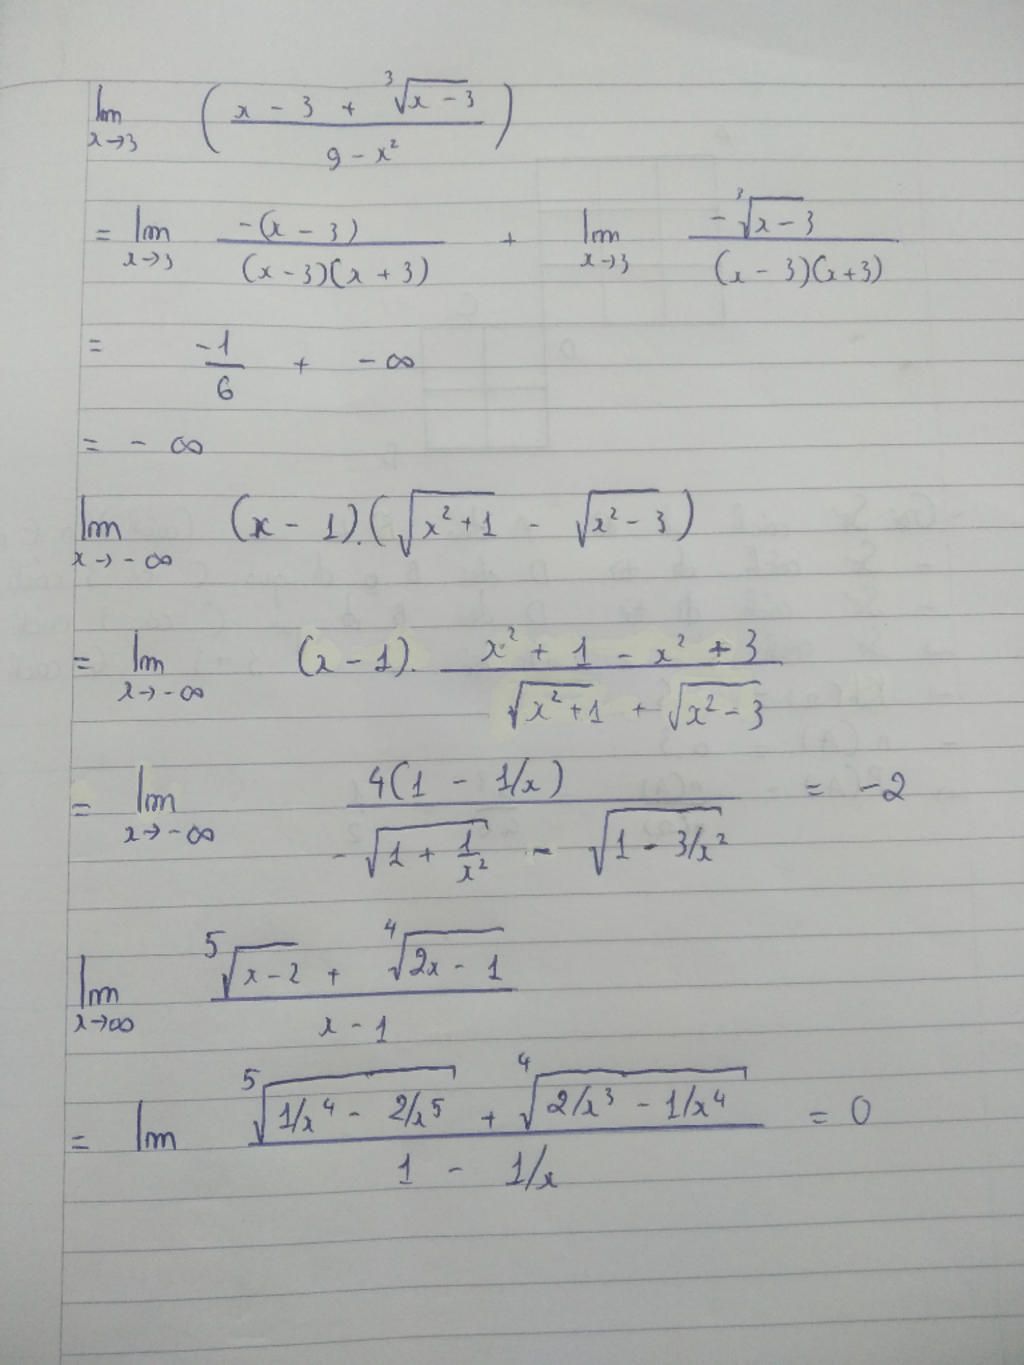 lim x→3 ( (x - 3 + ∛(x - 3)) / (9 - x²) )
= lim x→3 -(x - 3) / ((x - 3)(x + 3)) + lim x→3 -∛(x - 3) / ((x - 3)(x + 3))
= -1/6 + -∞
= - ∞
lim x→-∞ (x - 1).(√(x² + 1) - √(x² - 3))
= lim x→-∞ (x - 1). (x² + 1 - x² + 3) / (√(x² + 1) + √(x² - 3))
= lim x→-∞ 4(1 - 1/x) / (-√(1 + 1/x²) - √(1 - 3/x²)) = -2
lim x→∞ (⁵√(x - 2) + ⁴√(2x - 1)) / (x - 1)
= lim (⁵√(1/x⁴ - 2/x⁵) + ⁴√(2/x³ - 1/x⁴)) / (1 - 1/x) = 0